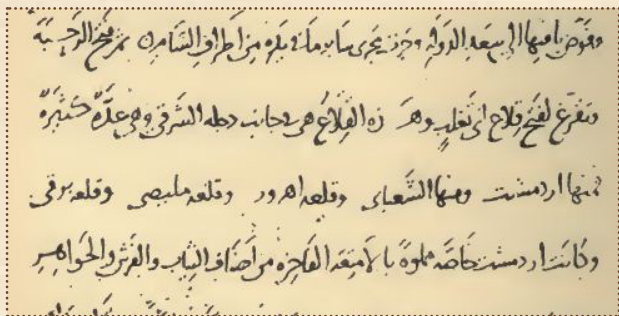 وفوض ما فيها الى سعد الدوله يجرى ساير ما في يده من اطراف الشام ثم فتح الرحبة
وتفرغ لفتح قلاع ابى تغلب وهذه القلاع هى فى جانب دجله الشرقى وهى عدة كثيرة
فمنها اردمشت ومنها الشعبانى وقلعه اهرور وقلعه مليصى وقلعه برقى
وكانت اردمشت خاصة مملوة بالامتعه الفاخره من اصناف الثياب والفرش والجواهر